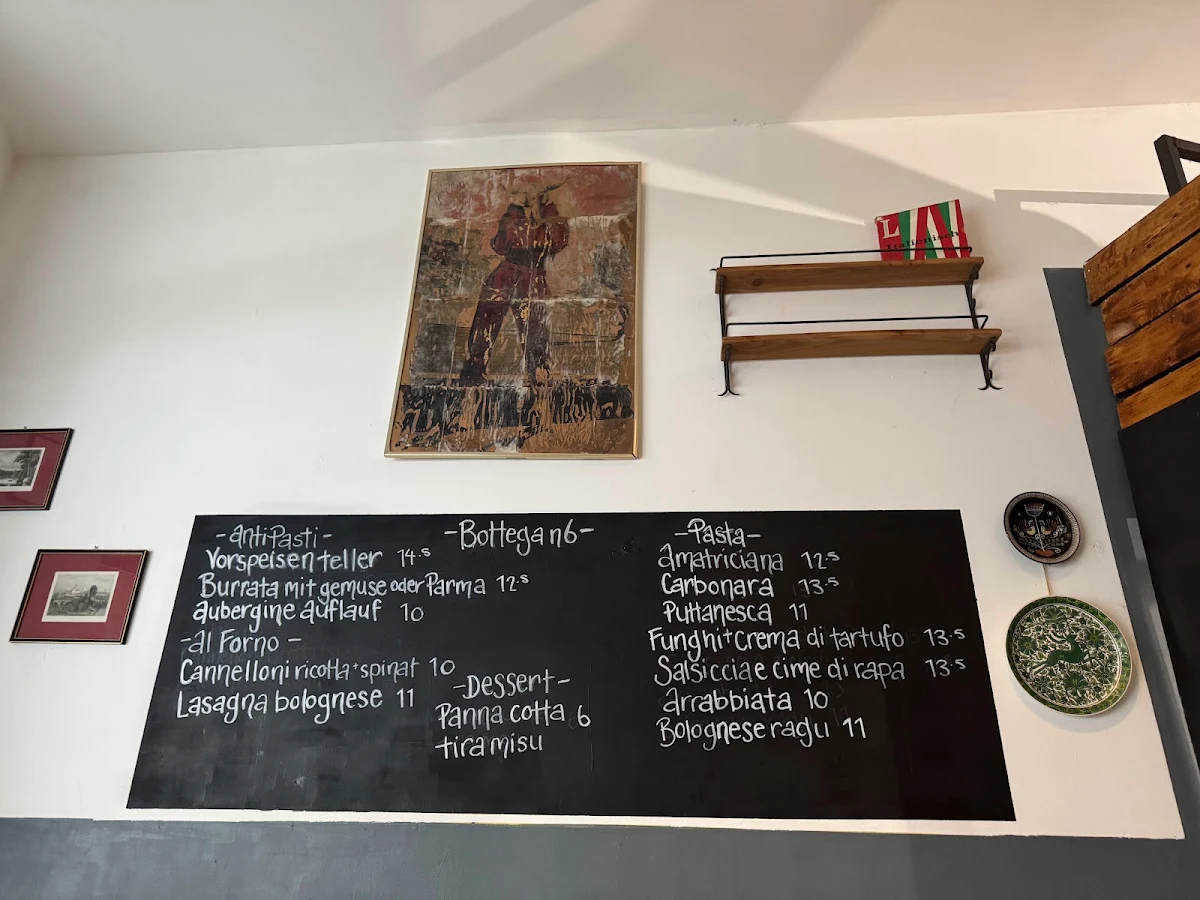 L
Italienisch
-Bottega n6-
-antiPasti-
Vorspeisenteller 14.5
Burrata mit gemuse oder Parma 12.5
aubergine auflauf 10
-al Forno-
Cannelloni ricotta+spinat 10
Lasagna bolognese 11
-Dessert-
Panna cotta 6
tiramisu
-Pasta-
amatriciana 12.5
Carbonara 13.5
Puttanesca 11
Funghi+Crema di tartufo 13.5
Salsiccia e cime di rapa 13.5
arrabbiata 10
Bolognese ragu 11